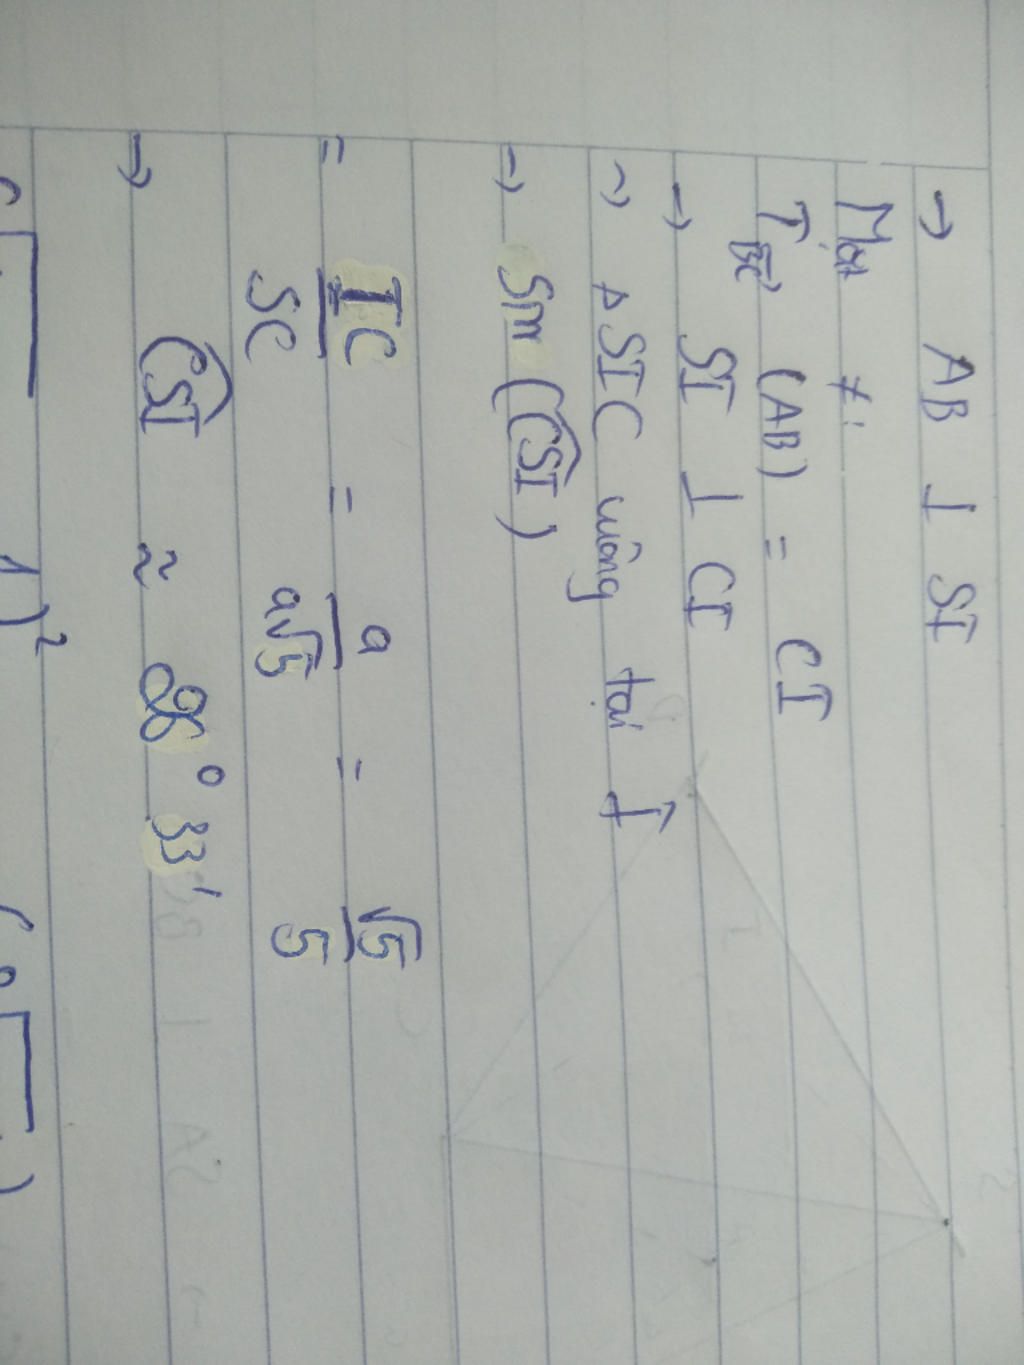 → AB ⊥ SI
Mặt ≠:
T_{BC} (AB) = CI
→ SI ⊥ CI
→ ΔSIC vuông tại I
→ Sin (CSI)
= IC/SC = a/a√5 = √5/5
→ CSI ≈ 26° 33'